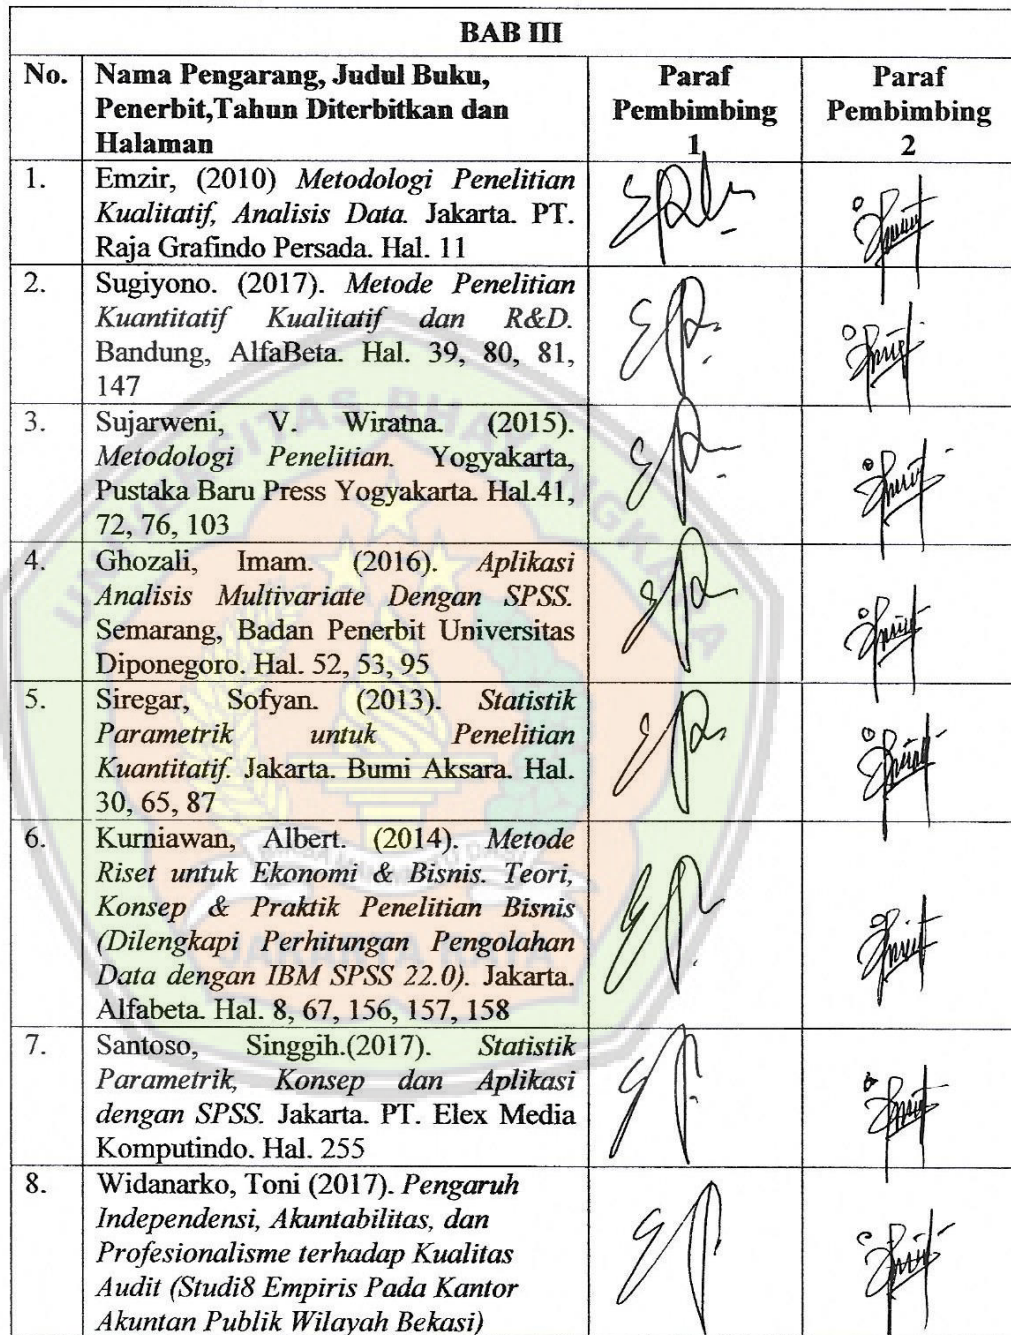 BAB III
No. Nama Pengarang, Judul Buku, Penerbit,Tahun Diterbitkan dan Halaman Paraf Pembimbing 1 Paraf Pembimbing 2
1. Emzir, (2010) Metodologi Penelitian
Kualitatif, Analisis Data. Jakarta. PT.
Raja Grafindo Persada. Hal. 11
2. Sugiyono. (2017). Metode Penelitian
Kuantitatif Kualitatif dan R&D.
Bandung, AlfaBeta. Hal. 39, 80, 81,
147
3. Sujarweni, V. Wiratna. (2015).
Metodologi Penelitian. Yogyakarta,
Pustaka Baru Press Yogyakarta. Hal.41,
72, 76, 103
4. Ghozali, Imam. (2016). Aplikasi
Analisis Multivariate Dengan SPSS.
Semarang, Badan Penerbit Universitas
Diponegoro. Hal. 52, 53, 95
5. Siregar, Sofyan. (2013). Statistik
Parametrik untuk Penelitian
Kuantitatif. Jakarta. Bumi Aksara. Hal.
30, 65, 87
6. Kurniawan, Albert. (2014). Metode
Riset untuk Ekonomi & Bisnis. Teori,
Konsep & Praktik Penelitian Bisnis
(Dilengkapi Perhitungan Pengolahan
Data dengan IBM SPSS 22.0). Jakarta.
Alfabeta. Hal. 8, 67, 156, 157, 158
7. Santoso, Singgih.(2017). Statistik
Parametrik, Konsep dan Aplikasi
dengan SPSS. Jakarta. PT. Elex Media
Komputindo. Hal. 255
8. Widanarko, Toni (2017). Pengaruh
Independensi, Akuntabilitas, dan
Profesionalisme terhadap Kualitas
Audit (Studi8 Empiris Pada Kantor
Akuntan Publik Wilayah Bekasi)
UNIVERSITAS BHAYANGKARA
JAKARTA RAYA